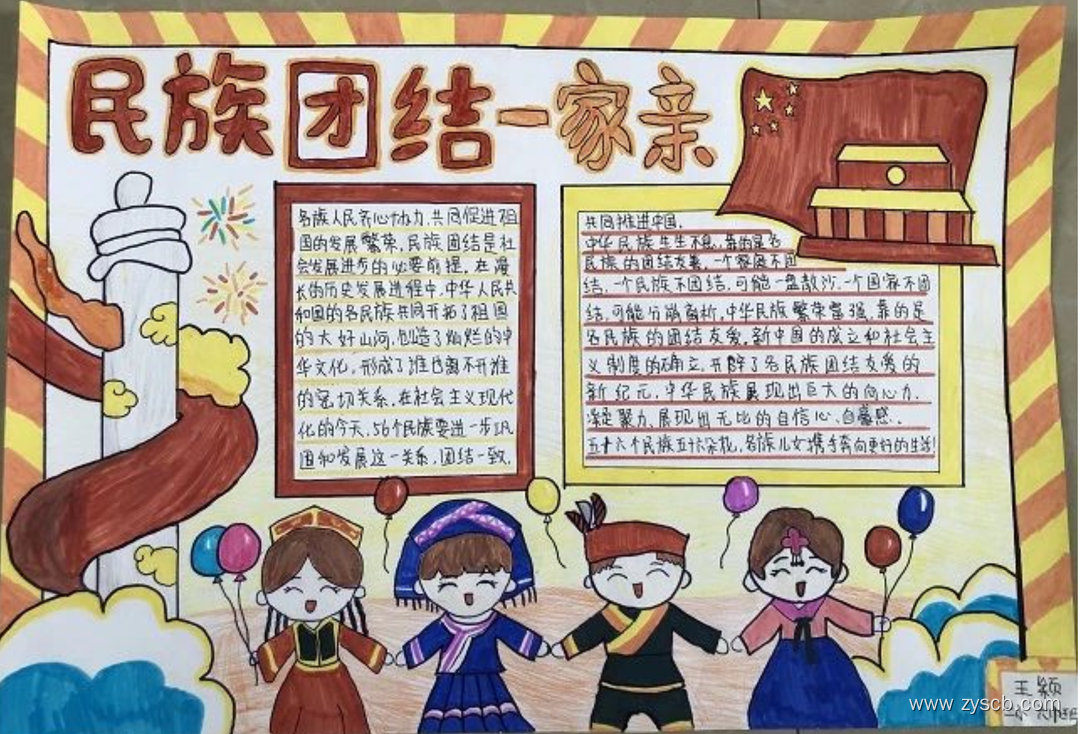 民族团结一家亲
各族人民齐心协力，共同促进祖
国的发展繁荣，民族团结是社
会发展进步的必要前提，在漫
长的历史发展进程中，中华人民共
和国的各民族共同开拓了祖国
的大好山河，创造了灿烂的中
华文化，形成了谁也离不开谁
的密切关系，在社会主义现代
化的今天，56个民族要进一步巩
固和发展这一关系，团结一致，
共同推进中国，
中华民族生生不息，靠的是各
民族的团结友爱，一个家庭不团
结，一个民族不团结，可能一盘散沙，一个国家不团
结，可能分崩离析，中华民族繁荣富强，靠的是
各民族的团结友爱，新中国的成立和社会主
义制度的确立，开辟了各民族团结友爱的
新纪元，中华民族展现出巨大的向心力，
凝聚力，展现出无比的自信心、自豪感，
五十六个民族五十六朵花，各族儿女携手奔向更好的生活！
王颖
www.zyscb.com